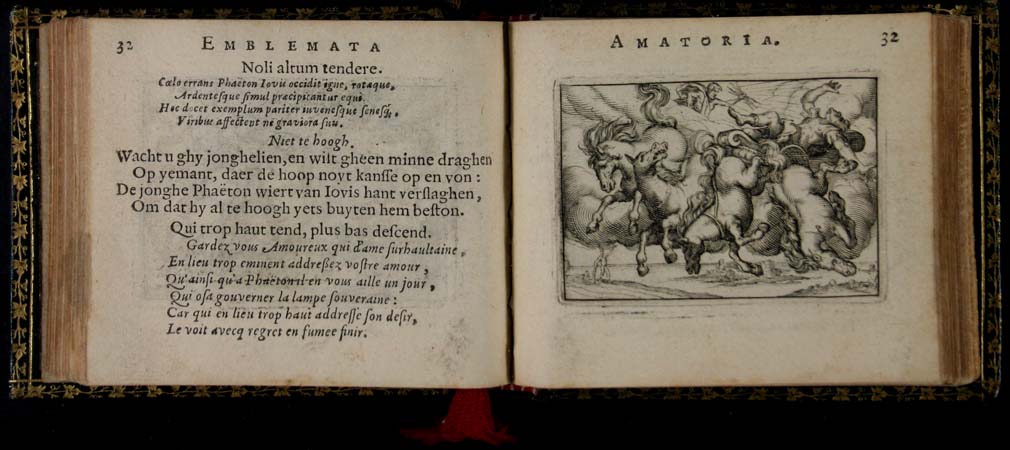 32 EMBLEMATA
Noli altum tendere.
Cœlo errans Phaëton Iovis occidit igne, rotaque,
Ardentesque simul præcipitantur equi.
Hoc docet exemplum pariter iuvenesque senesq́;,
Viribus affectent ne graviora suis.
Niet te hoogh.
Wacht u ghy jonghelien, en wilt gheen minne draghen
Op yemant, daer de hoop noyt kansse op en von:
De jonghe Phaëton wiert van Iovis hant verslaghen,
Om dat hy al te hoogh yets buyten hem beston.
Qui trop haut tend, plus bas descend.
Gardez vous Amoureux qui d'ame surhaultaine,
En lieu trop eminent addreßez vostre amour,
Qu'ainsi qu'a Phaëton il en vous aille un jour,
Qui osa gouverner la lampe souveraine:
Car qui en lieu trop haut addresse son desir,
Le voit avecq regret en fumee finir.
AMATORIA. 32